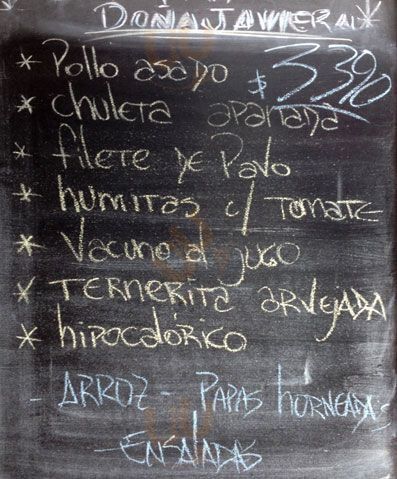 DOÑA JAVIERA *
* Pollo asado $ 3390
* chuleta apanada
* filete de Pavo
* humitas c/ TOMATE
* Vacuno al jugo
* TERNERITA ARVEJADA
* hipocalórico
- ARROZ - PAPAS hORNEADAS
- ENSALADAS